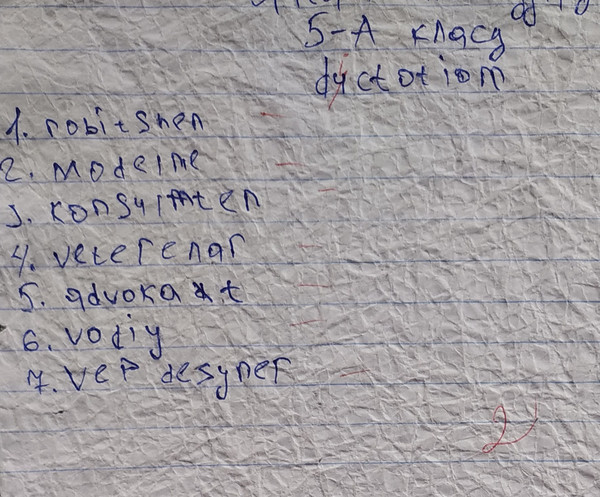 5-А класу
dyctotiom
1. robitsnen
2. modelne
3. konsulmten
4. veterenar
5. advokat
6. vodiy
7. Vep desyner
2